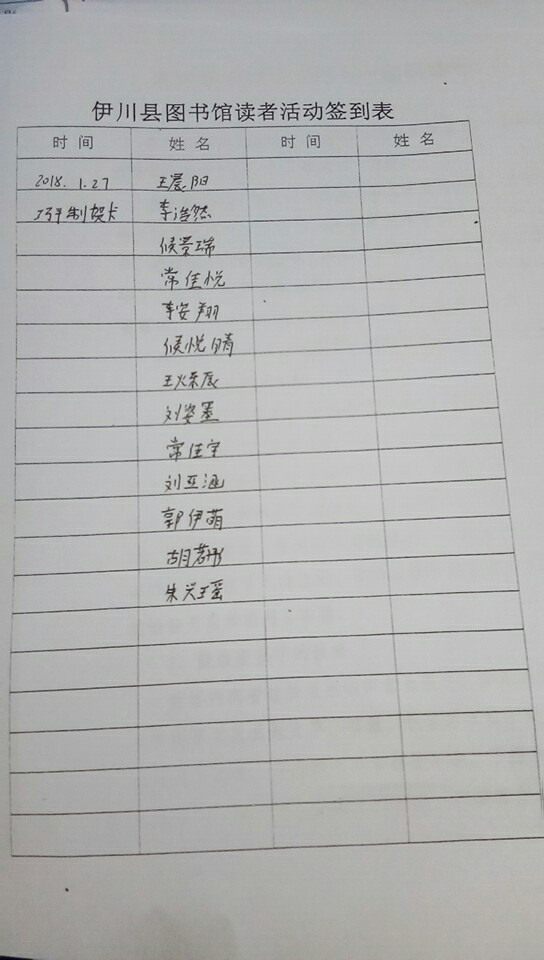 伊川县图书馆读者活动签到表
时间 姓名 时间 姓名
2018.1.27 王晨阳
巧手制贺卡 李浩然
候景瑞
常佳悦
李安翔
候悦晴
王焌辰
刘姿墨
常佳宇
刘亚涵
郭伊萌
胡若彤
朱兴瑶